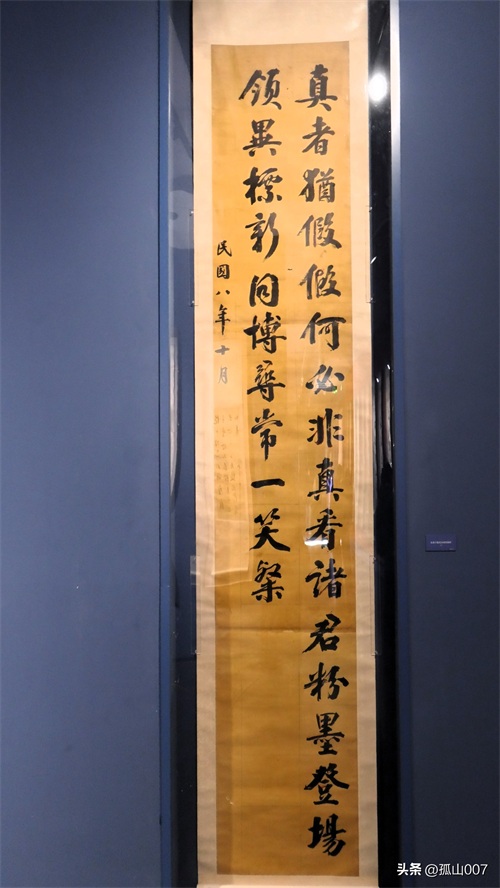 真者猶假假何必非真看諸君粉墨登場
領異標新同博尋常一笑粲
民國八年十月
头条 @孤山007